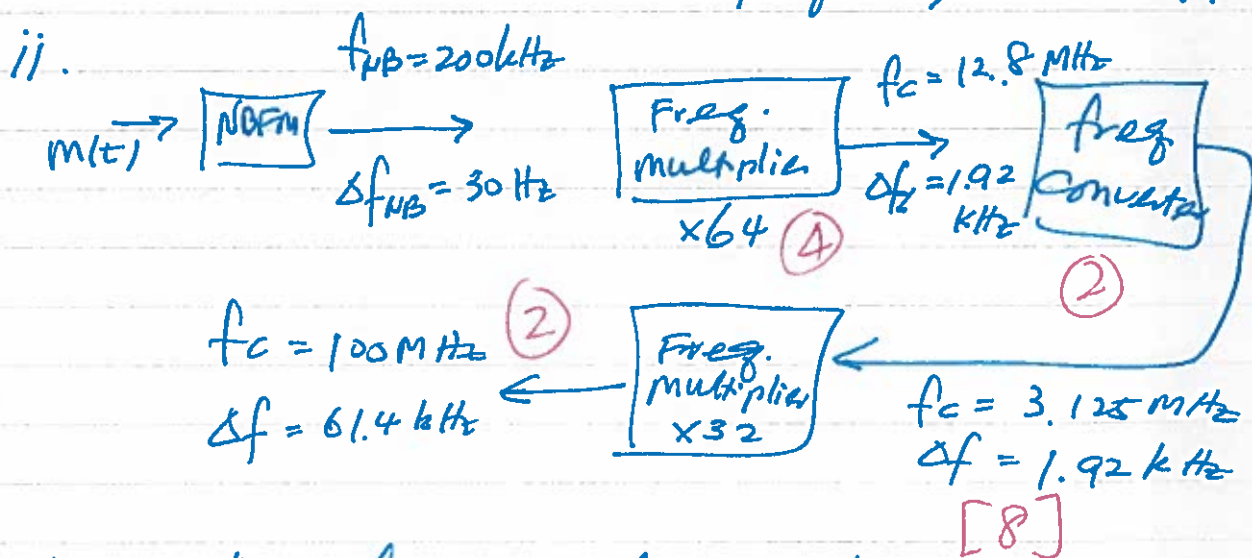 ii.
f_NB = 200kHz
m(t) → NBFM →
Δf_NB = 30 Hz
Freq. multiplier
×64 ④
fc = 12.8 MHz
Δf = 1.92 kHz
freq converter
②
fc = 3.125 MHz
Δf = 1.92 kHz
[8]
Freq. multiplier ×32
fc = 100 MHz ②
Δf = 61.4 kHz